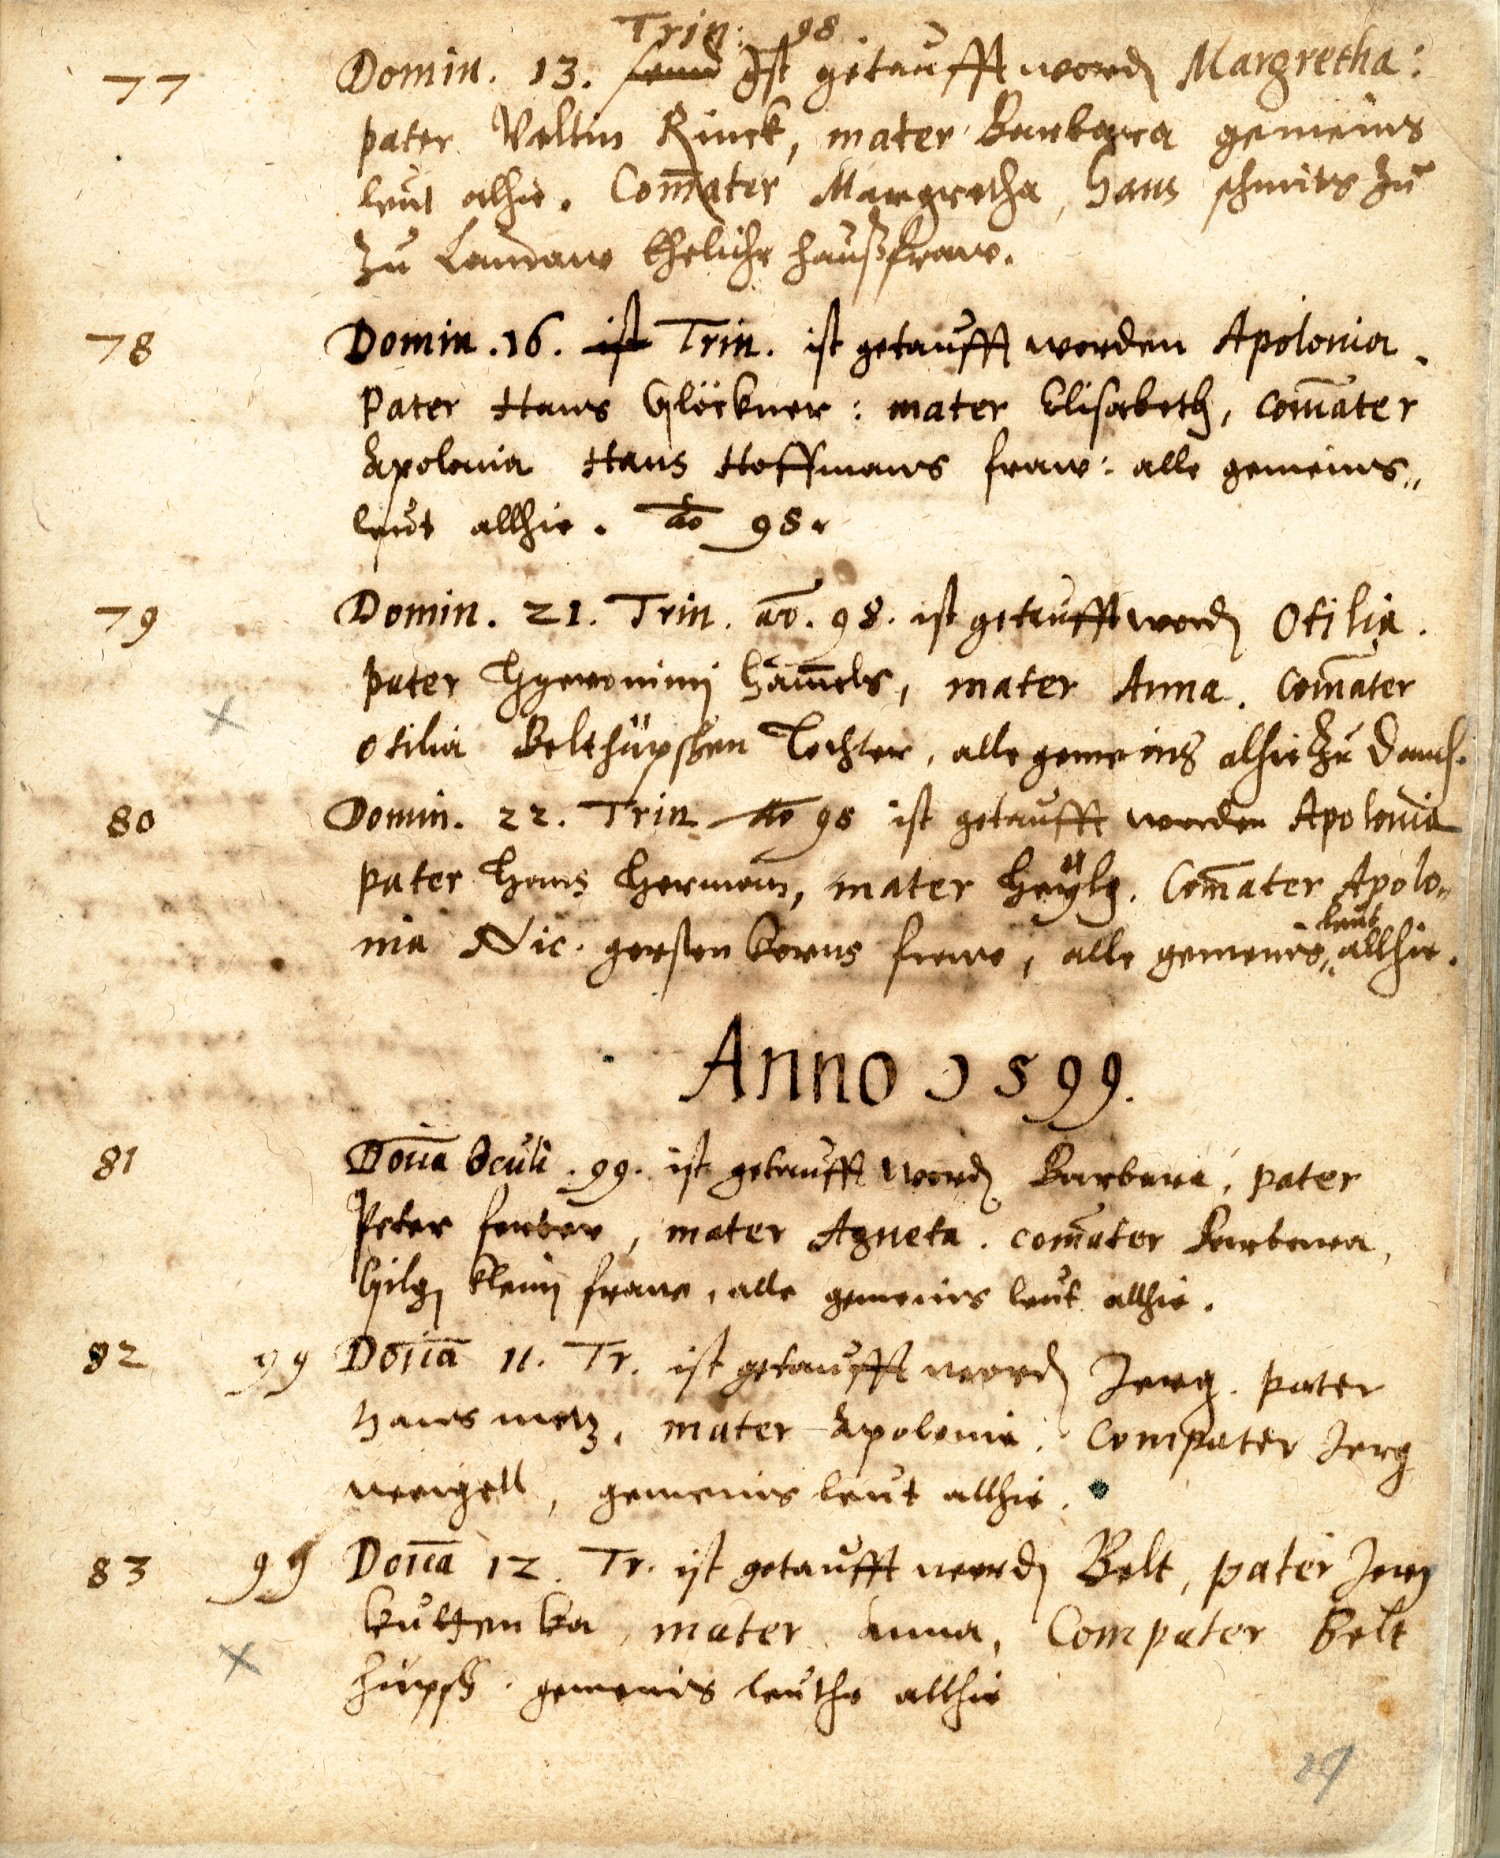 Trin. 98.
77 Domin. 13. ist getaufft word Margretha:
pater Valtin Rinck, mater Barbara gemeins
leut alhie. Com̄ater Margretha, Hans schmits zu
zu Landaw Eheliche haußfraw.
78 Domin. 16. ist Trin. ist getaufft worden Apolonia.
Pater Hans Glöckner: mater Elisabeth, com̄ater
Apolonia Hans Hoffmans fraw: alle gemeins„
leut allhie. ao 98.
79 Domin. 21. Trin. ao. 98. ist getaufft word Otilia.
pater Hyeronimj Ham̄els, mater Anna. Com̄ater
Otilia Belthüpschen Tochter, alle gemeins alhie zu
80 Domin. 22. Trin ao 98 ist getaufft worden Apolonia
pater Hans Herman, mater Heÿlg. Com̄ater Apolo„
leut
nia Nic. gersten korns frawe, alle gemeins„ allhie.
Anno 1599.
81 Doīca Oculi. 99. ist getaufft word Barbara, pater
Peter ferber, mater Agneta. com̄ater Barbara,
Hilg klein frawe, alle gemeins leut allhie.
82 99 Doīca 11. Tr. ist getaufft word Jerg. pater
Hans metz, mater Apolonia. Compater Jerg
weigell, gemeins leut allhie.
83 99 Doīca 12. Tr. ist getaufft word Belt, pater Jerg
mater Anna, Compater Belt
hüpsch. gemeins leuthe allhie
29